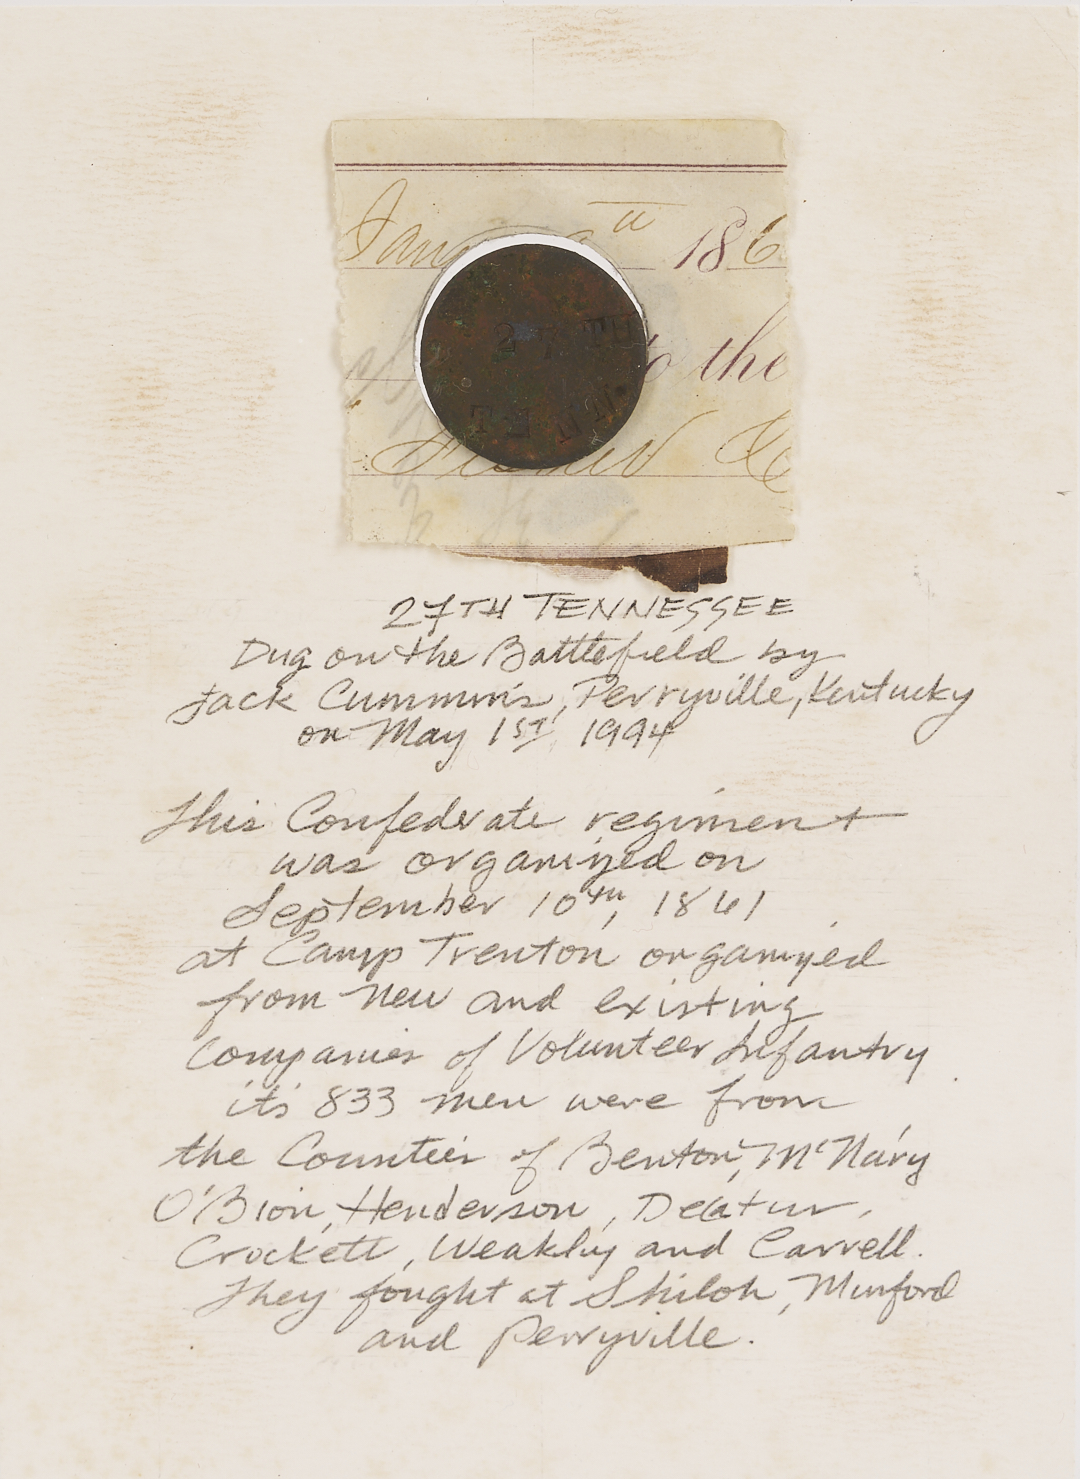 186
2 7 TH
to the
TENN.
27TH TENNESSEE
Dug on the Battlefield by
Jack Cummins, Perryville, Kentucky
on May 1ST, 1994
This Confederate regiment
was organized on
September 10th, 1861
at Camp Trenton organized
from new and existing
Companies of Volunteer Infantry
it's 833 men were from
the Counties of Benton, McNary
O'Bion, Henderson, Decatur,
Crockett, Weakly and Carrell.
They fought at Shiloh, Munford
and Perryville.